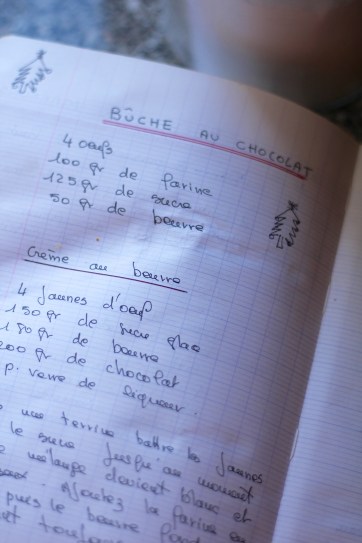 BÛCHE AU CHOCOLAT
4 oeufs
100 gr de farine
125 gr de sucre
50 gr de beurre
Crème au beurre
4 jaunes d'oeuf
150 gr de sucre glac
150 gr de beurre
200 gr de chocolat
p. verre de liqueur.
une terrine battre les jaunes
le sucre jusqu'au moment
mélange devient blanc et
Ajoutez la farine en
puis le beurre fondu